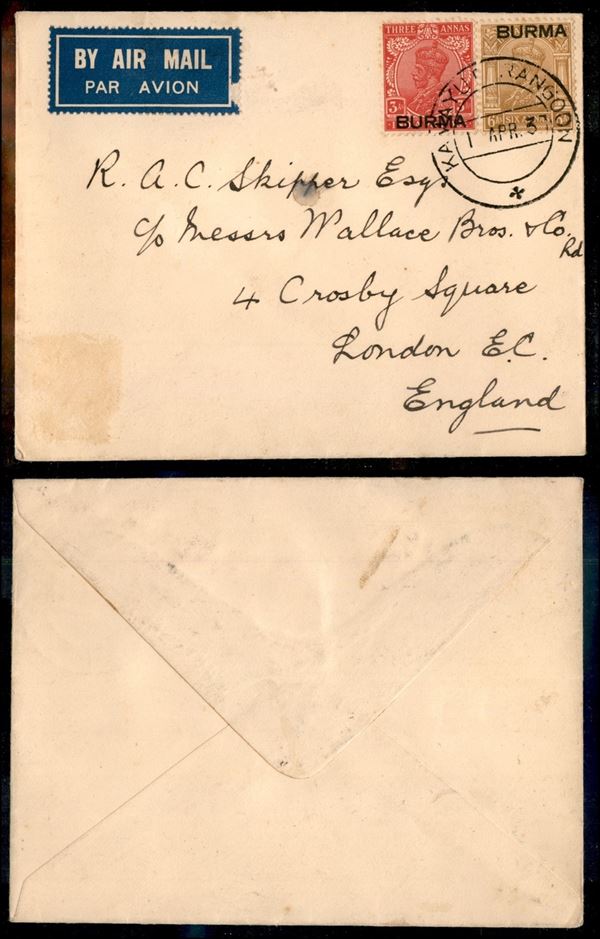 BY AIR MAIL
PAR AVION
THREE ANNAS
3As
BURMA
BURMA
6As SIX
RANGOON
1 APR. 37
R. A. C. Skipper Esq.
c/o Messrs Wallace Bros. & Co.
Rd
4 Crosby Square
London E.C.
England